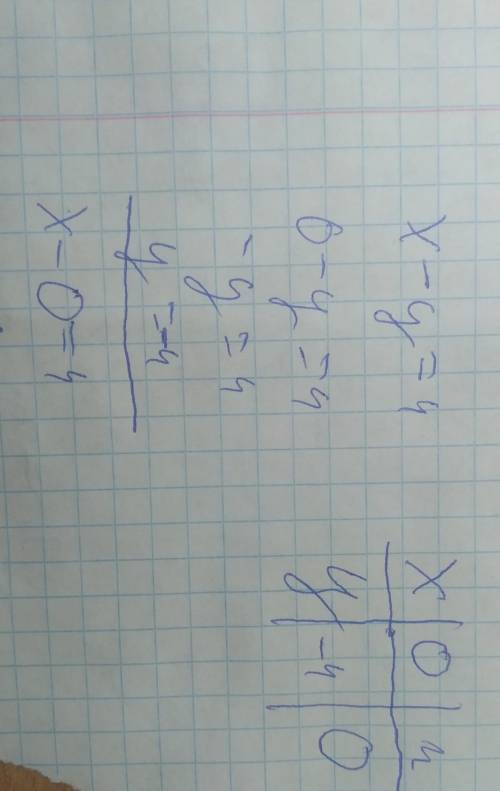 x - y = 4
0 - y = 4
- y = 4
y = -4
x - 0 = 4
x | 0 | 4
y | -4 | 0